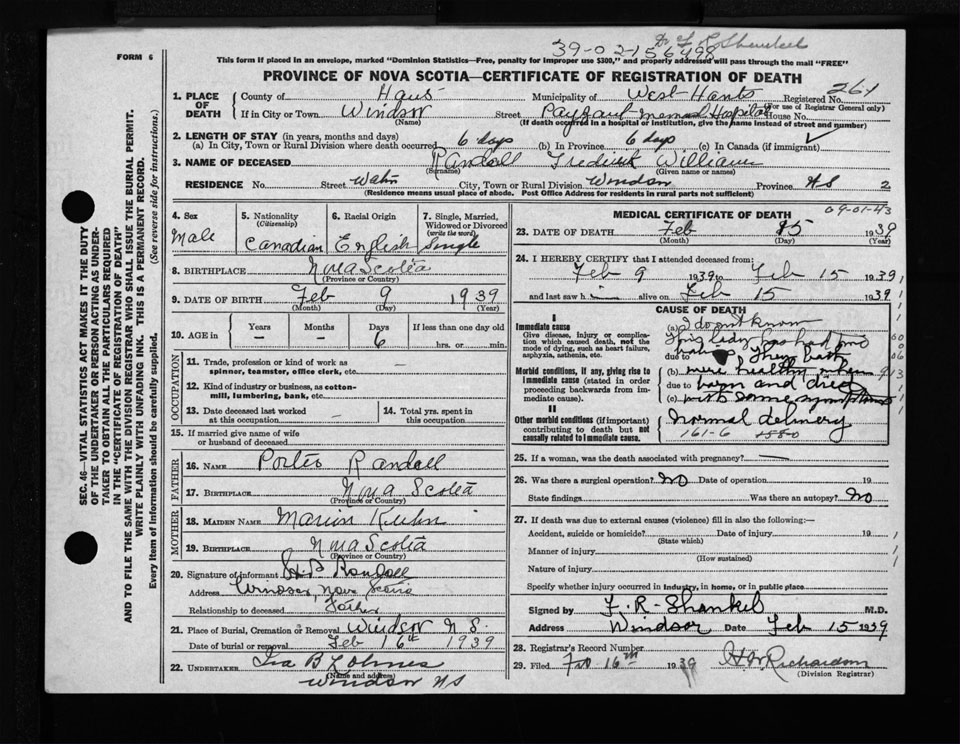 FORM 6
39-02-156498
Dr. F. R. Shankel
This form if placed in an envelope, marked "Dominion Statistics—Free, penalty for improper use $300," and properly addressed will pass through the mail "FREE"
PROVINCE OF NOVA SCOTIA—CERTIFICATE OF REGISTRATION OF DEATH
264
1. PLACE OF DEATH
County of Hants Municipality of West Hants Registered No.
(For use of Registrar General only)
If in City or Town Windsor Street Payzant Memorial Hospital House No.
(Name) (If death occurred in a hospital or institution, give the name instead of street and number)
2. LENGTH OF STAY (in years, months and days)
(a) In City, Town or Rural Division where death occurred 6 days (b) In Province 6 days (c) In Canada (if immigrant)
3. NAME OF DECEASED Randall Frederick William
(Surname) (Given name or names)
RESIDENCE No. Street Water City, Town or Rural Division Windsor Province NS 2
(Residence means usual place of abode. Post Office Address for residents in rural parts not sufficient)
4. Sex Male
5. Nationality (Citizenship) Canadian
6. Racial Origin English
7. Single, Married, Widowed or Divorced (write the word) Single
8. BIRTHPLACE Nova Scotia
(Province or Country)
9. DATE OF BIRTH Feb 9 1939
(Month) (Day) (Year)
10. AGE in Years Months Days If less than one day old
— — 6 hrs. or min.
OCCUPATION
11. Trade, profession or kind of work as spinner, teamster, office clerk, etc. —
12. Kind of industry or business, as cotton-mill, lumbering, bank, etc.
13. Date deceased last worked at this occupation —
14. Total yrs. spent in this occupation
15. If married give name of wife or husband of deceased
FATHER
16. NAME Porter Randall
17. BIRTHPLACE Nova Scotia
(Province or Country)
MOTHER
18. MAIDEN NAME Marion Kuhn
19. BIRTHPLACE Nova Scotia
(Province or Country)
20. Signature of informant H. P. Randall
Address Windsor, Nova Scotia
Relationship to deceased Father
21. Place of Burial, Cremation or Removal Windsor N.S.
Date of burial or removal Feb 16th 1939
22. UNDERTAKER Ira B Lohnes
(Name and address)
Windsor NS
MEDICAL CERTIFICATE OF DEATH
09-01-43
23. DATE OF DEATH Feb 15 1939
(Month) (Day) (Year)
24. I HEREBY CERTIFY that I attended deceased from:
Feb 9 1939 to Feb 15 1939
and last saw h im alive on Feb 15 1939
CAUSE OF DEATH
I
Immediate cause
Give disease, injury or complication which caused death, not the mode of dying, such as heart failure, asphyxia, asthenia, etc.
Morbid conditions, if any, giving rise to immediate cause (stated in order proceeding backwards from immediate cause).
II
Other morbid conditions (if important) contributing to death but not causally related to immediate cause.
(a) I do not know
This lady has had two
due to
(b) were healthy when
due to born and died
(c) with same symptoms
Normal delivery
161-6 1550
25. If a woman, was the death associated with pregnancy? —
26. Was there a surgical operation? No Date of operation 19
State findings Was there an autopsy? No
27. If death was due to external causes (violence) fill in also the following:—
Accident, suicide or homicide? Date of injury 19
(State which)
Manner of injury
(How sustained)
Nature of injury
Specify whether injury occurred in industry, in home, or in public place
Signed by F. R. Shankel M.D.
Address Windsor Date Feb 15 1939
28. Registrar's Record Number
29. Filed Feb 16th 1939 H W Richardson
(Division Registrar)
SEC. 46—VITAL STATISTICS ACT MAKES IT THE DUTY
OF THE UNDERTAKER OR PERSON ACTING AS UNDER-
TAKER TO OBTAIN ALL THE PARTICULARS REQUIRED
IN THE "CERTIFICATE OF REGISTRATION OF DEATH"
AND TO FILE THE SAME WITH THE DIVISION REGISTRAR WHO SHALL ISSUE THE BURIAL PERMIT.
WRITE PLAINLY WITH UNFADING INK. THIS IS A PERMANENT RECORD.
Every item of information should be carefully supplied. (See reverse side for instructions.)